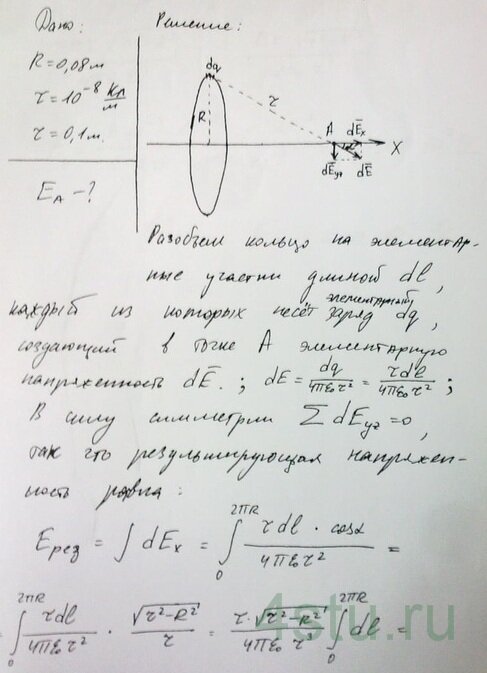 Дано:
R = 0,08 м
τ = 10⁻⁸ Кл/м
r = 0,1 м.
E_A - ?
Решение:
dq
R
r
A
dĒₓ
α
X
dĒ_yz
dĒ
Разобьем кольцо на элементар-
ные участки длиной dl,
каждый из которых несёт элементарный заряд dq,
создающий в точке A элементарную
напряженность dĒ.; dE = dq/(4πε₀r²) = τdl/(4πε₀r²);
В силу симметрии ∑ dE_yz = 0,
так что результирующая напряжен-
ность равна:
E_рез = ∫ dEₓ = ∫₀^{2πR} τ dl · cosα/(4πε₀r²) =
= ∫₀^{2πR} τdl/(4πε₀r²) · √(r²-R²)/r = τ·√(r²-R²)/(4πε₀r³) ∫₀^{2πR} dl =
4stu.ru